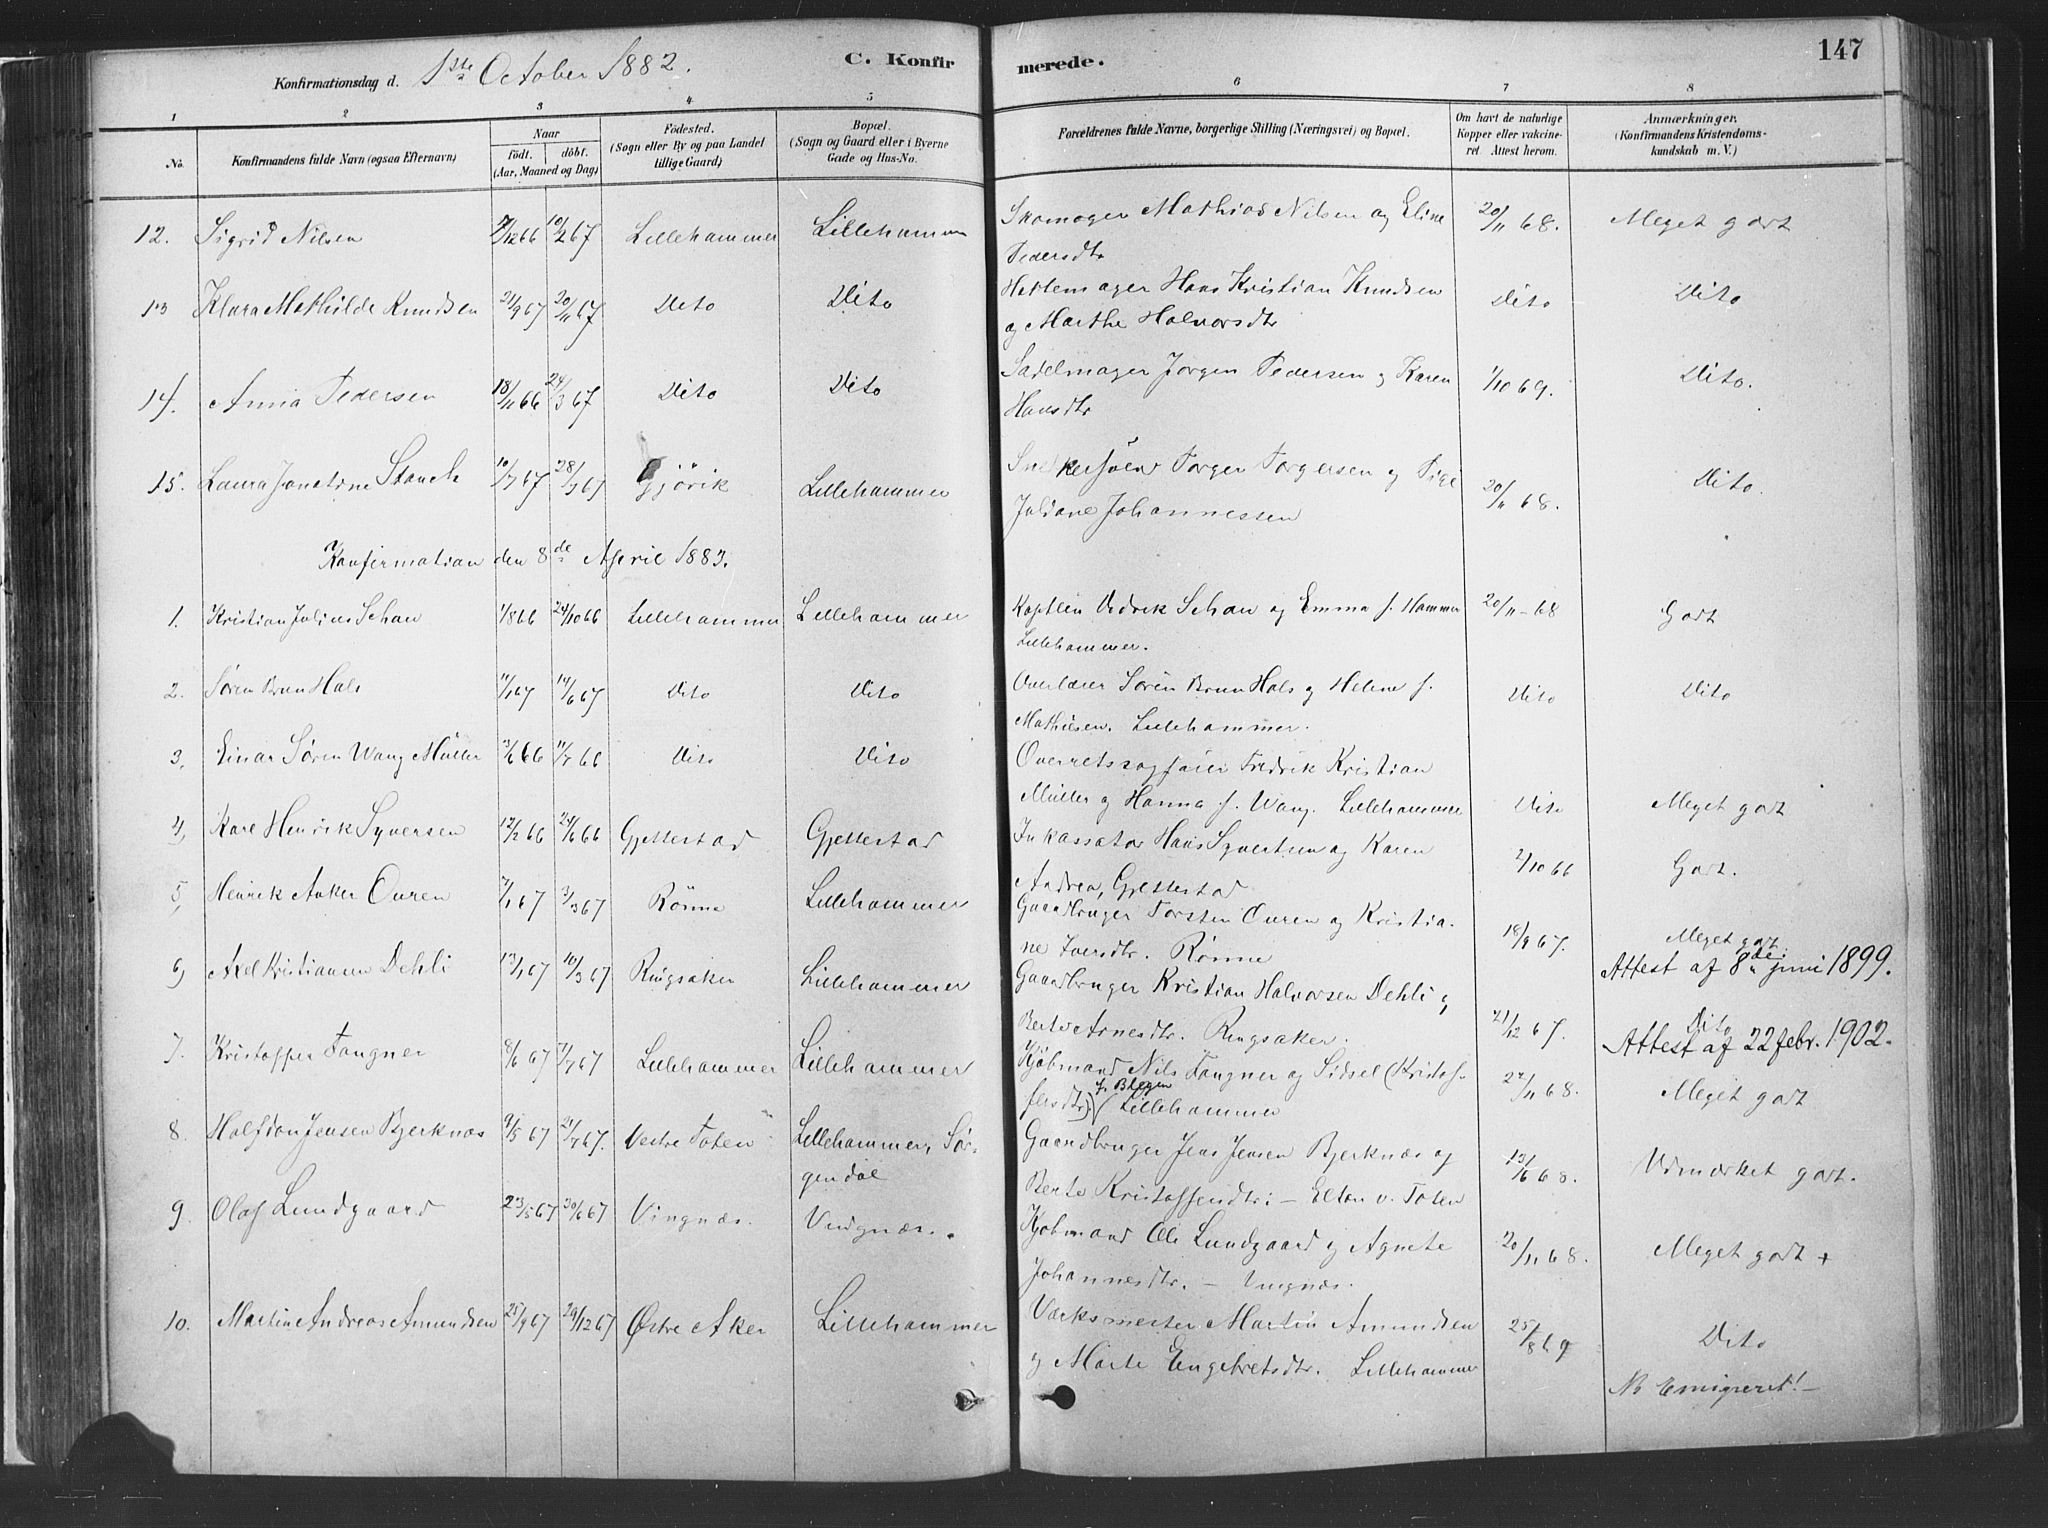 147
Konfirmationsdag d. 1ste October 1882. C. Konfirmerede.
1 2 3 4 5 6 7 8
No. Konfirmandens fulde Navn (ogsaa Efternavn) Naar födt. döbt. (Aar, Maaned og Dag) Födested. (Sogn eller By og paa Landet tillige Gaard) Bopæl. (Sogn og Gaard eller i Byerne Gade og Hus-No. Forældrenes fulde Navne, borgerlige Stilling (Næringsvei) og Bopæl. Om havt de naturlige Kopper eller vakcineret. Attest herom. Anmærkninger. (Konfirmandens Kristendomskundskab m. V.)
12. Sigrid Nilsen 7/12 66 10/2 67 Lillehammer Lillehammer Skomager Mathias Nilsen og Eline 20/11 68. Meget godt
Pedersdtr
13 Klara Mathilde Knudsen 21/9 67 20/11 67 Dito Dito Hattemager Hans Kristian Knudsen Dito Dito
og Marthe Halvorsdtr
14. Anna Pedersen 18/11 66 24/3 67 Dito Dito Sadelmager Jørgen Pedersen og Karen 1/10 69. Dito.
Hansdtr
15. Laura 10/7 67 28/7 67 Gjøvik Lillehammer Torger Torgersen og Pige 20/11 68. Dito.
Juliane Johannessen
Konfirmation den 8de April 1883.
1. Kristian Julius Schau 1/8 66 24/10 66 Lillehammer Lillehammer Schau og Emma f. Hammer 20/11-68 Godt
Lillehammer.
2. Søren Brun Hals 11/1 67 14/6 67 Dito Dito Overlærer Søren Brun Hals og Helene f. Dito Dito
Mathiesen. Lillehammer.
3, Einar Søren Wang Müller 3/6 66 11/7 66 Dito Dito Overretssagfører Fredrik Kristian
Müller og Hanna f. Wang. Lillehammer Dito Meget godt
4, Karl Henrik Syversen 12/2 66 24/6 66 Gjettestad Gjettestad Inkassator Hans Syvertsen og Karen 2/10 66 Godt.
Andrea, Gjettestad
5, Henrik Anker Ouren 7/1 67 3/3 67 Rönne Lillehammer Gaardbruger Torsten Ouren og Kristia-
ne Iversdtr. Rønne 18/9 67. Meget godt
6, Axel Kristiansen Dehli 13/1 67 10/3 67 Ringsaker Lillehammer Gaardbruger Kristian Halvorsen Dehli og Attest af 8de juni 1899.
Berte Arnesdtr. Ringsaker. 21/12 67. Dito
7. Kristoffer Fougner 8/6 67 7/7 67 Lillehammer Lillehammer Kjøbmand Nils Fougner og Sidsel (Kristof- Attest af 22 febr. 1902.
fersdtr.) f. Blegen Lillehammer 24/11 68. Meget godt
8. Halfdan Jensen Bjerknæs 9/5 67 21/7 67. Vestre Toten Lillehammer, Sør- Gaardbruger Jens Jensen Bjerknæs og 13/6 68. Udmærket godt.
gendal Berte Kristoffersdtr: - Elton v. Toten
9. Olaf Lundgaard 23/5 67 30/6 67 Vingnæs. Vingnæs. Kjøbmand Ole Lundgaard og Agnete 20/11 68. Meget godt +
Johannesdtr. - Vingnæs.
10. Martin Andreas Amundsen 25/9 67 29/12 67 Østre Aker Lillehammer Værksmester Martin Amundsen 25/8 69 Dito
og Marte Engebretsdtr. Lillehammer
NB Emigreret! -